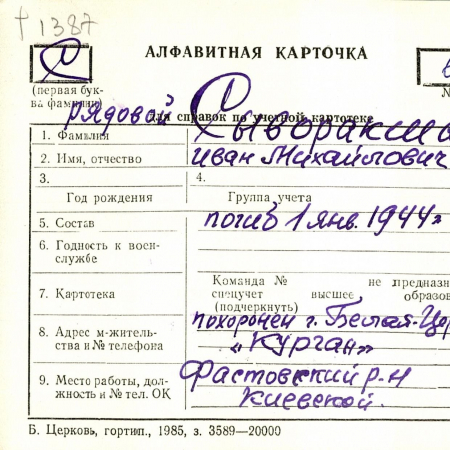 † 1387
АЛФАВИТНАЯ КАРТОЧКА
С
(первая бук-
ва фамилии)
рядовой
для справок по учетной картотеке
1. Фамилия
2. Имя, отчество Иван Михайлович
3. 4.
Год рождения Группа учета
5. Состав погиб 1 янв. 1944г
6. Годность к воен-
службе
Команда № не предназн
7. Картотека спецучет высшее образов
(подчеркнуть)
8. Адрес м-житель- похоронен г. Белая-Цер
ства и № телефона «Курган»
9. Место работы, дол- Фастовский р-н
жность и № тел. ОК Киевской.
Б. Церковь, гортип., 1985, з. 3589—20000